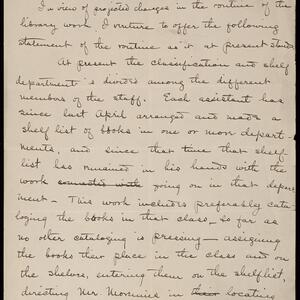 In view of projected changes in the routine of the
library work I venture to offer the following
statement of the routine as it at present stands
At present the classification and shelf
department is divided among the different
members of the staff. Each assistant has
since last April arranged and made a
shelf list of books in one or more depart-
ments, and since that time that shelf
list has remained in his hands with the
work connected with going on in that depart-
ment - This work includes preferably cata-
loging the books in that class, so far as
no other cataloging is pressing - assigning
the books their place in the class and on
the shelves, entering them on the shelflist,
directing Mr. in their locating